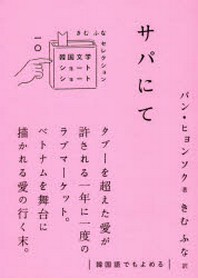 サパにて
きむ ふな セレクション
韓国文学
ショート
ショート
一〇
パン・ヒョンソク 著 きむ ふな 訳
タブーを超えた愛が
許される一年に一度の
ラブマーケット。
ベトナムを舞台に
描かれる愛の行く末。
韓国語でもよめる